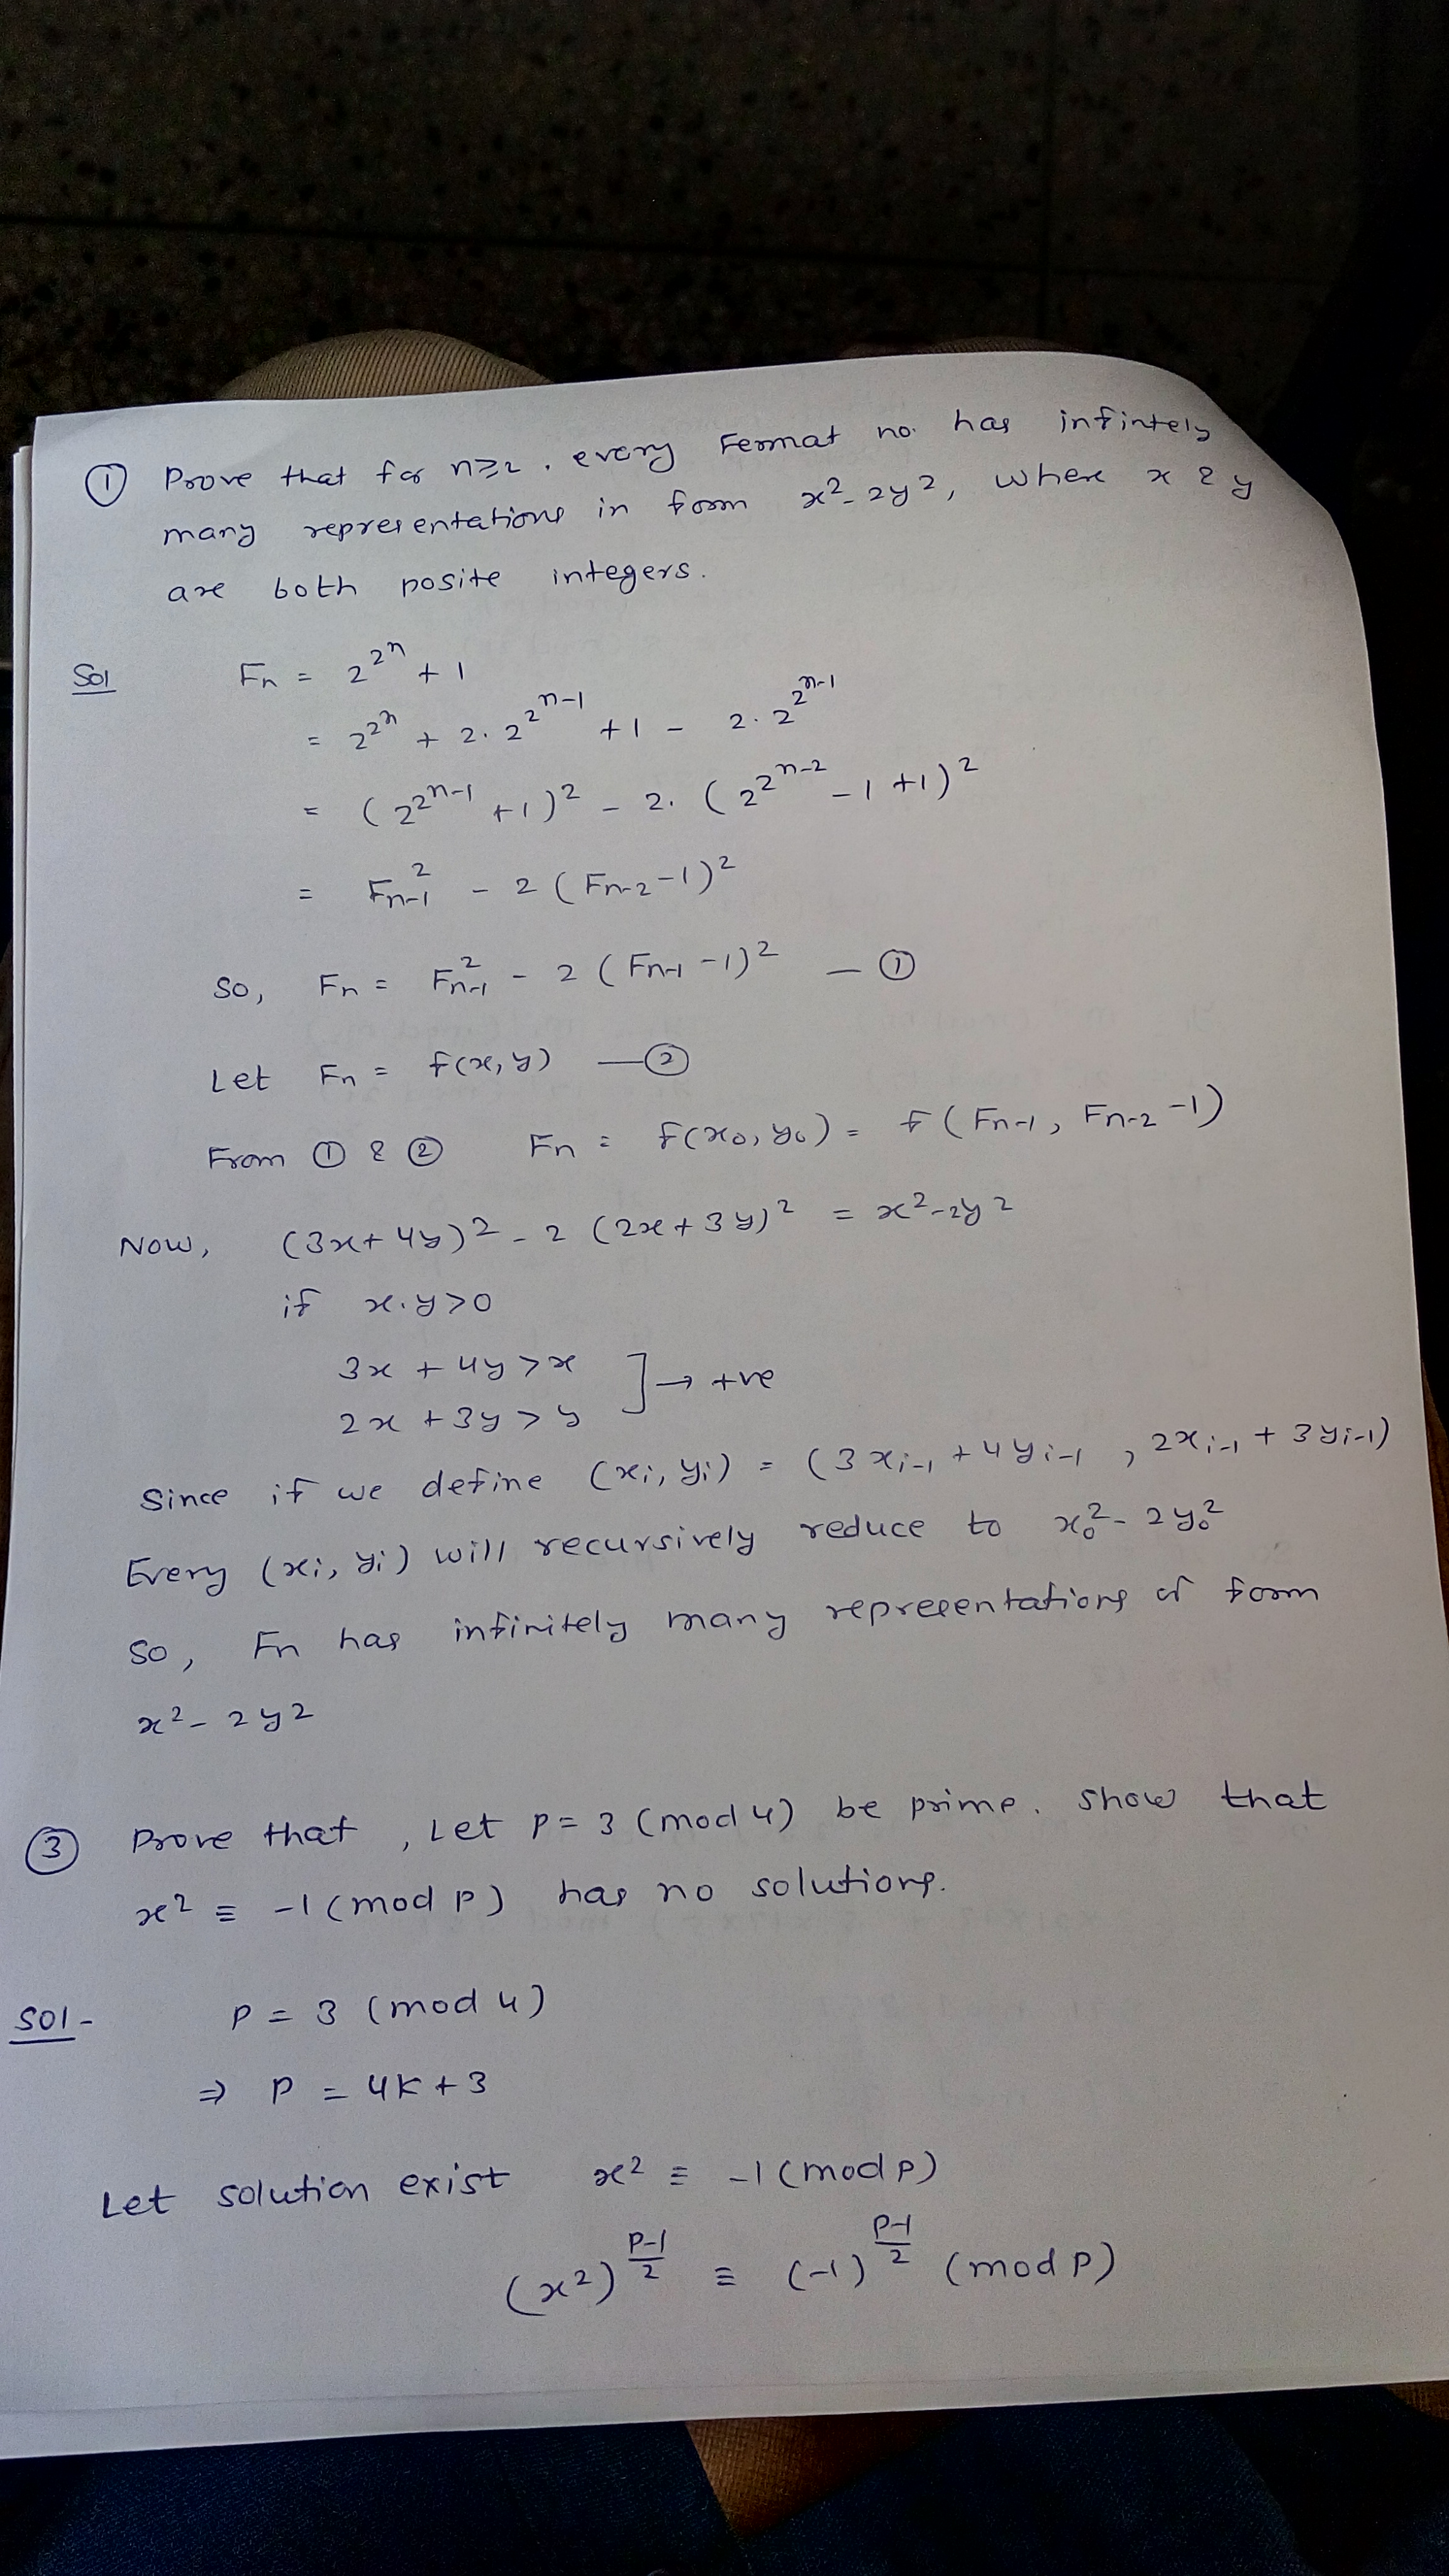 ① Prove that for n≥2, every Fermat no. has infintely
many representations in form x² - 2y², where x & y
are both posite integers.
Sol Fn = 2^2^n + 1
= 2^2^n + 2. 2^2^n-1 + 1 - 2. 2^2^n-1
= (2^2^n-1 + 1)² - 2. (2^2^n-2 - 1 + 1)²
= Fn-1² - 2 (Fn-2 - 1)²
So, Fn = Fn-1² - 2 (Fn-1 - 1)² — ①
Let Fn = f(x, y) — ②
From ① & ② Fn = f(x₀, y₀) = f (Fn-1, Fn-2 - 1)
Now, (3x + 4y)² - 2 (2x + 3y)² = x² - 2y²
if x.y > 0
3x + 4y > x
2x + 3y > y ] → +ve
Since if we define (xi, yi) = (3xi-1 + 4yi-1 , 2xi-1 + 3yi-1)
Every (xi, yi) will recursively reduce to x₀² - 2y₀²
So, Fn has infinitely many representations of form
x² - 2y²
③ Prove that , Let p = 3 (mod 4) be prime. Show that
x² ≡ -1 (mod p) has no solutions.
Sol - P = 3 (mod 4)
⇒ P = 4K + 3
Let solution exist x² ≡ -1 (mod p)
(x²)^(P-1)/2 ≡ (-1)^(P-1)/2 (mod p)